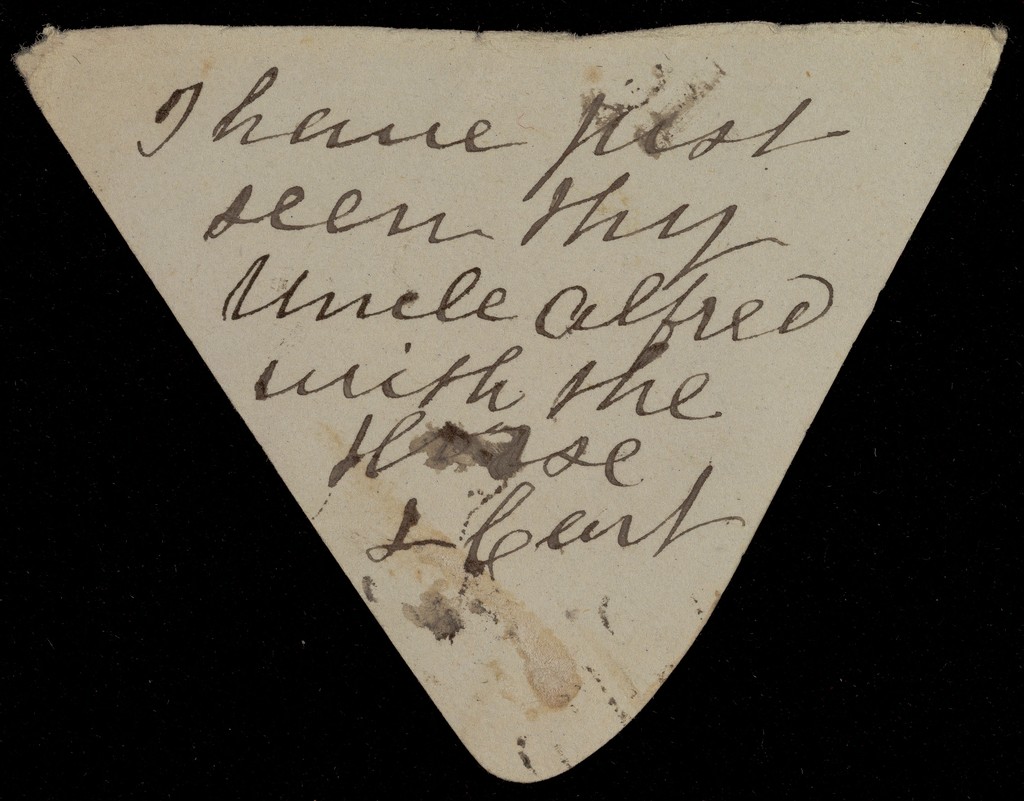 I have just
seen thy
Uncle Alfred
with the
Horse
& Cart